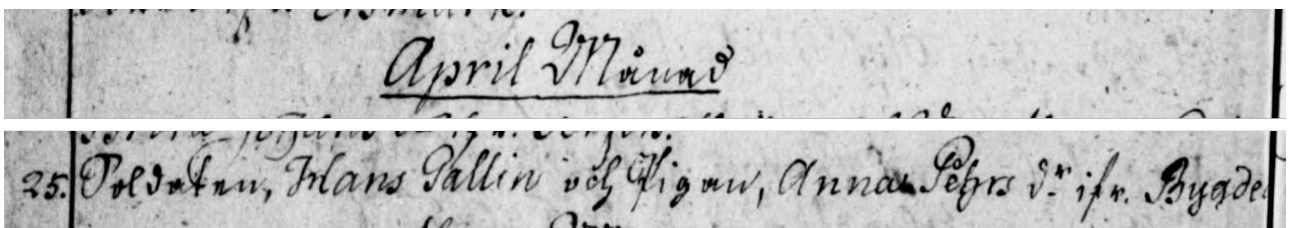 April Månad
25. Soldaten, Hans Sallin och Pigan, Anna Pehrs dr ifr. Bygde